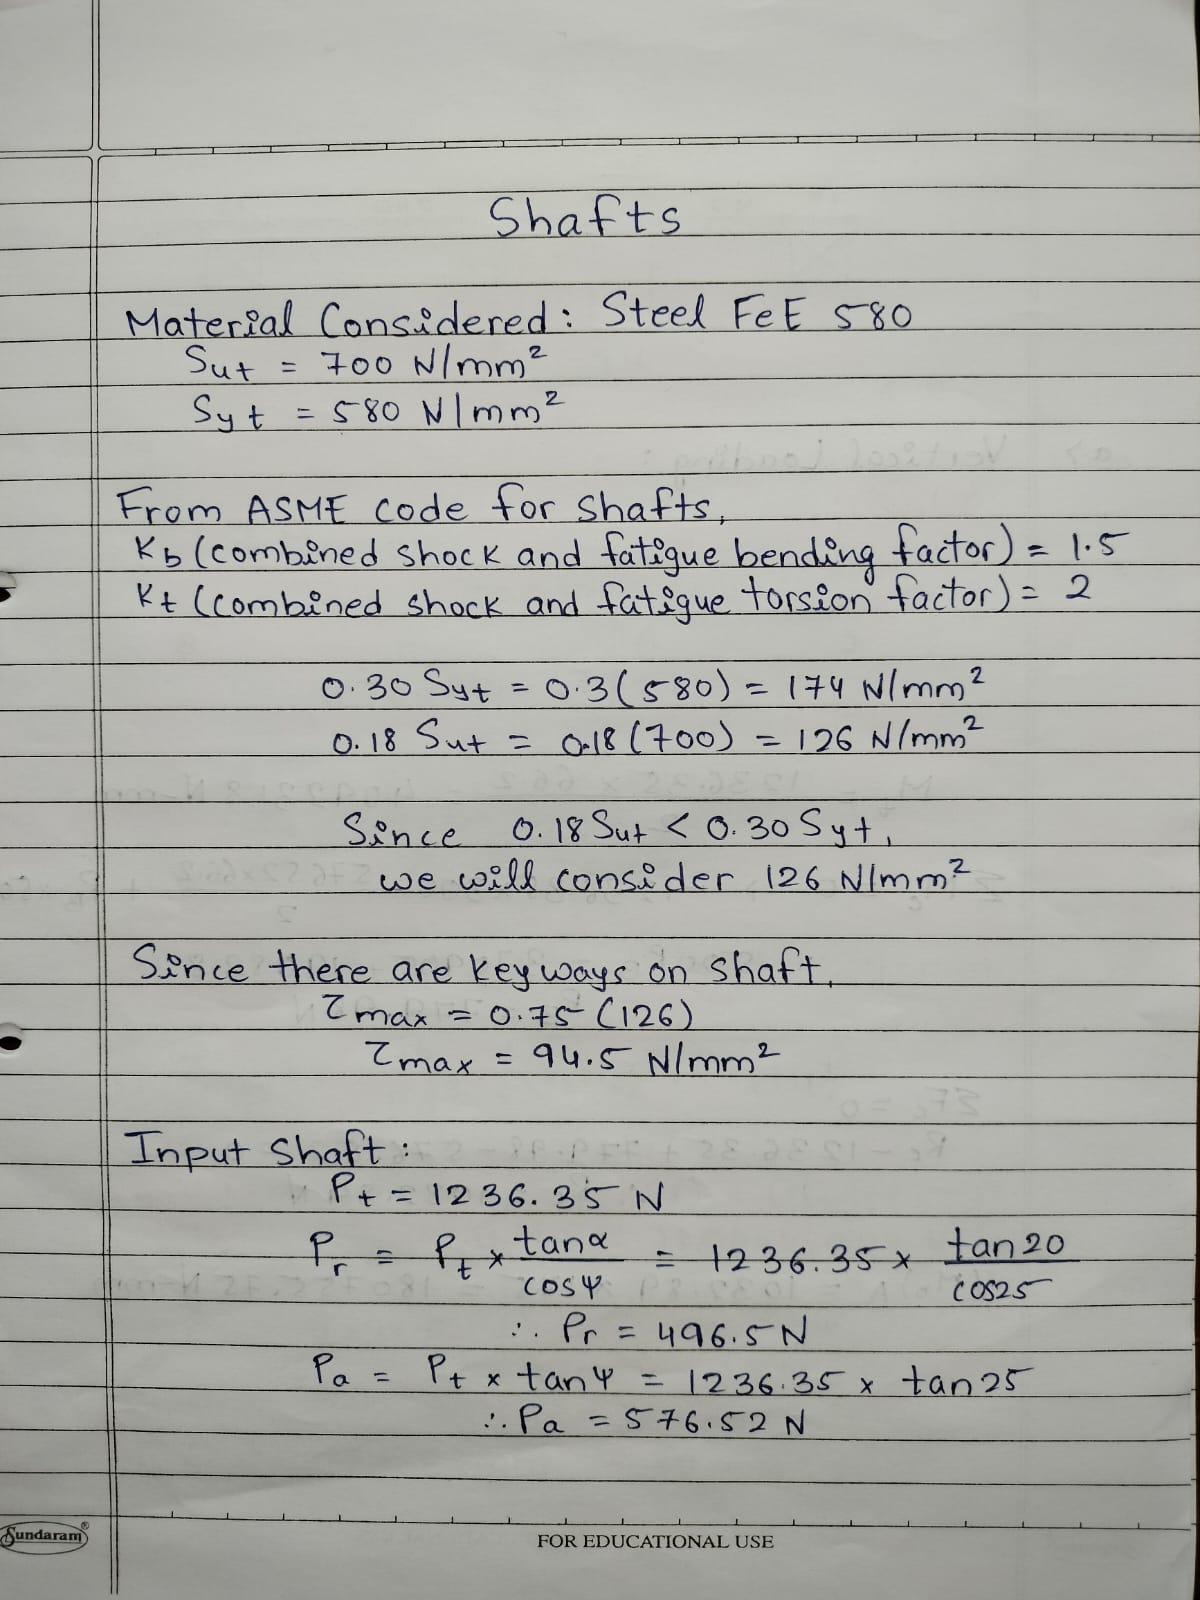 Shafts
Material Considered: Steel FeE 580
Sut = 700 N/mm²
Syt = 580 N/mm²
From ASME code for shafts,
Kb (combined shock and fatigue bending factor) = 1.5
Kt (combined shock and fatigue torsion factor) = 2
0.30 Syt = 0.3(580) = 174 N/mm²
0.18 Sut = 0.18(700) = 126 N/mm²
Since 0.18 Sut < 0.30 Syt,
we will consider 126 N/mm²
Since there are keyways on shaft,
τmax = 0.75 (126)
τmax = 94.5 N/mm²
Input Shaft:
Pt = 1236.35 N
Pr = Pt × tanα / cosψ = 1236.35 × tan20 / cos25
∴ Pr = 496.5 N
Pa = Pt × tanψ = 1236.35 × tan25
∴ Pa = 576.52 N
Sundaram®
FOR EDUCATIONAL USE